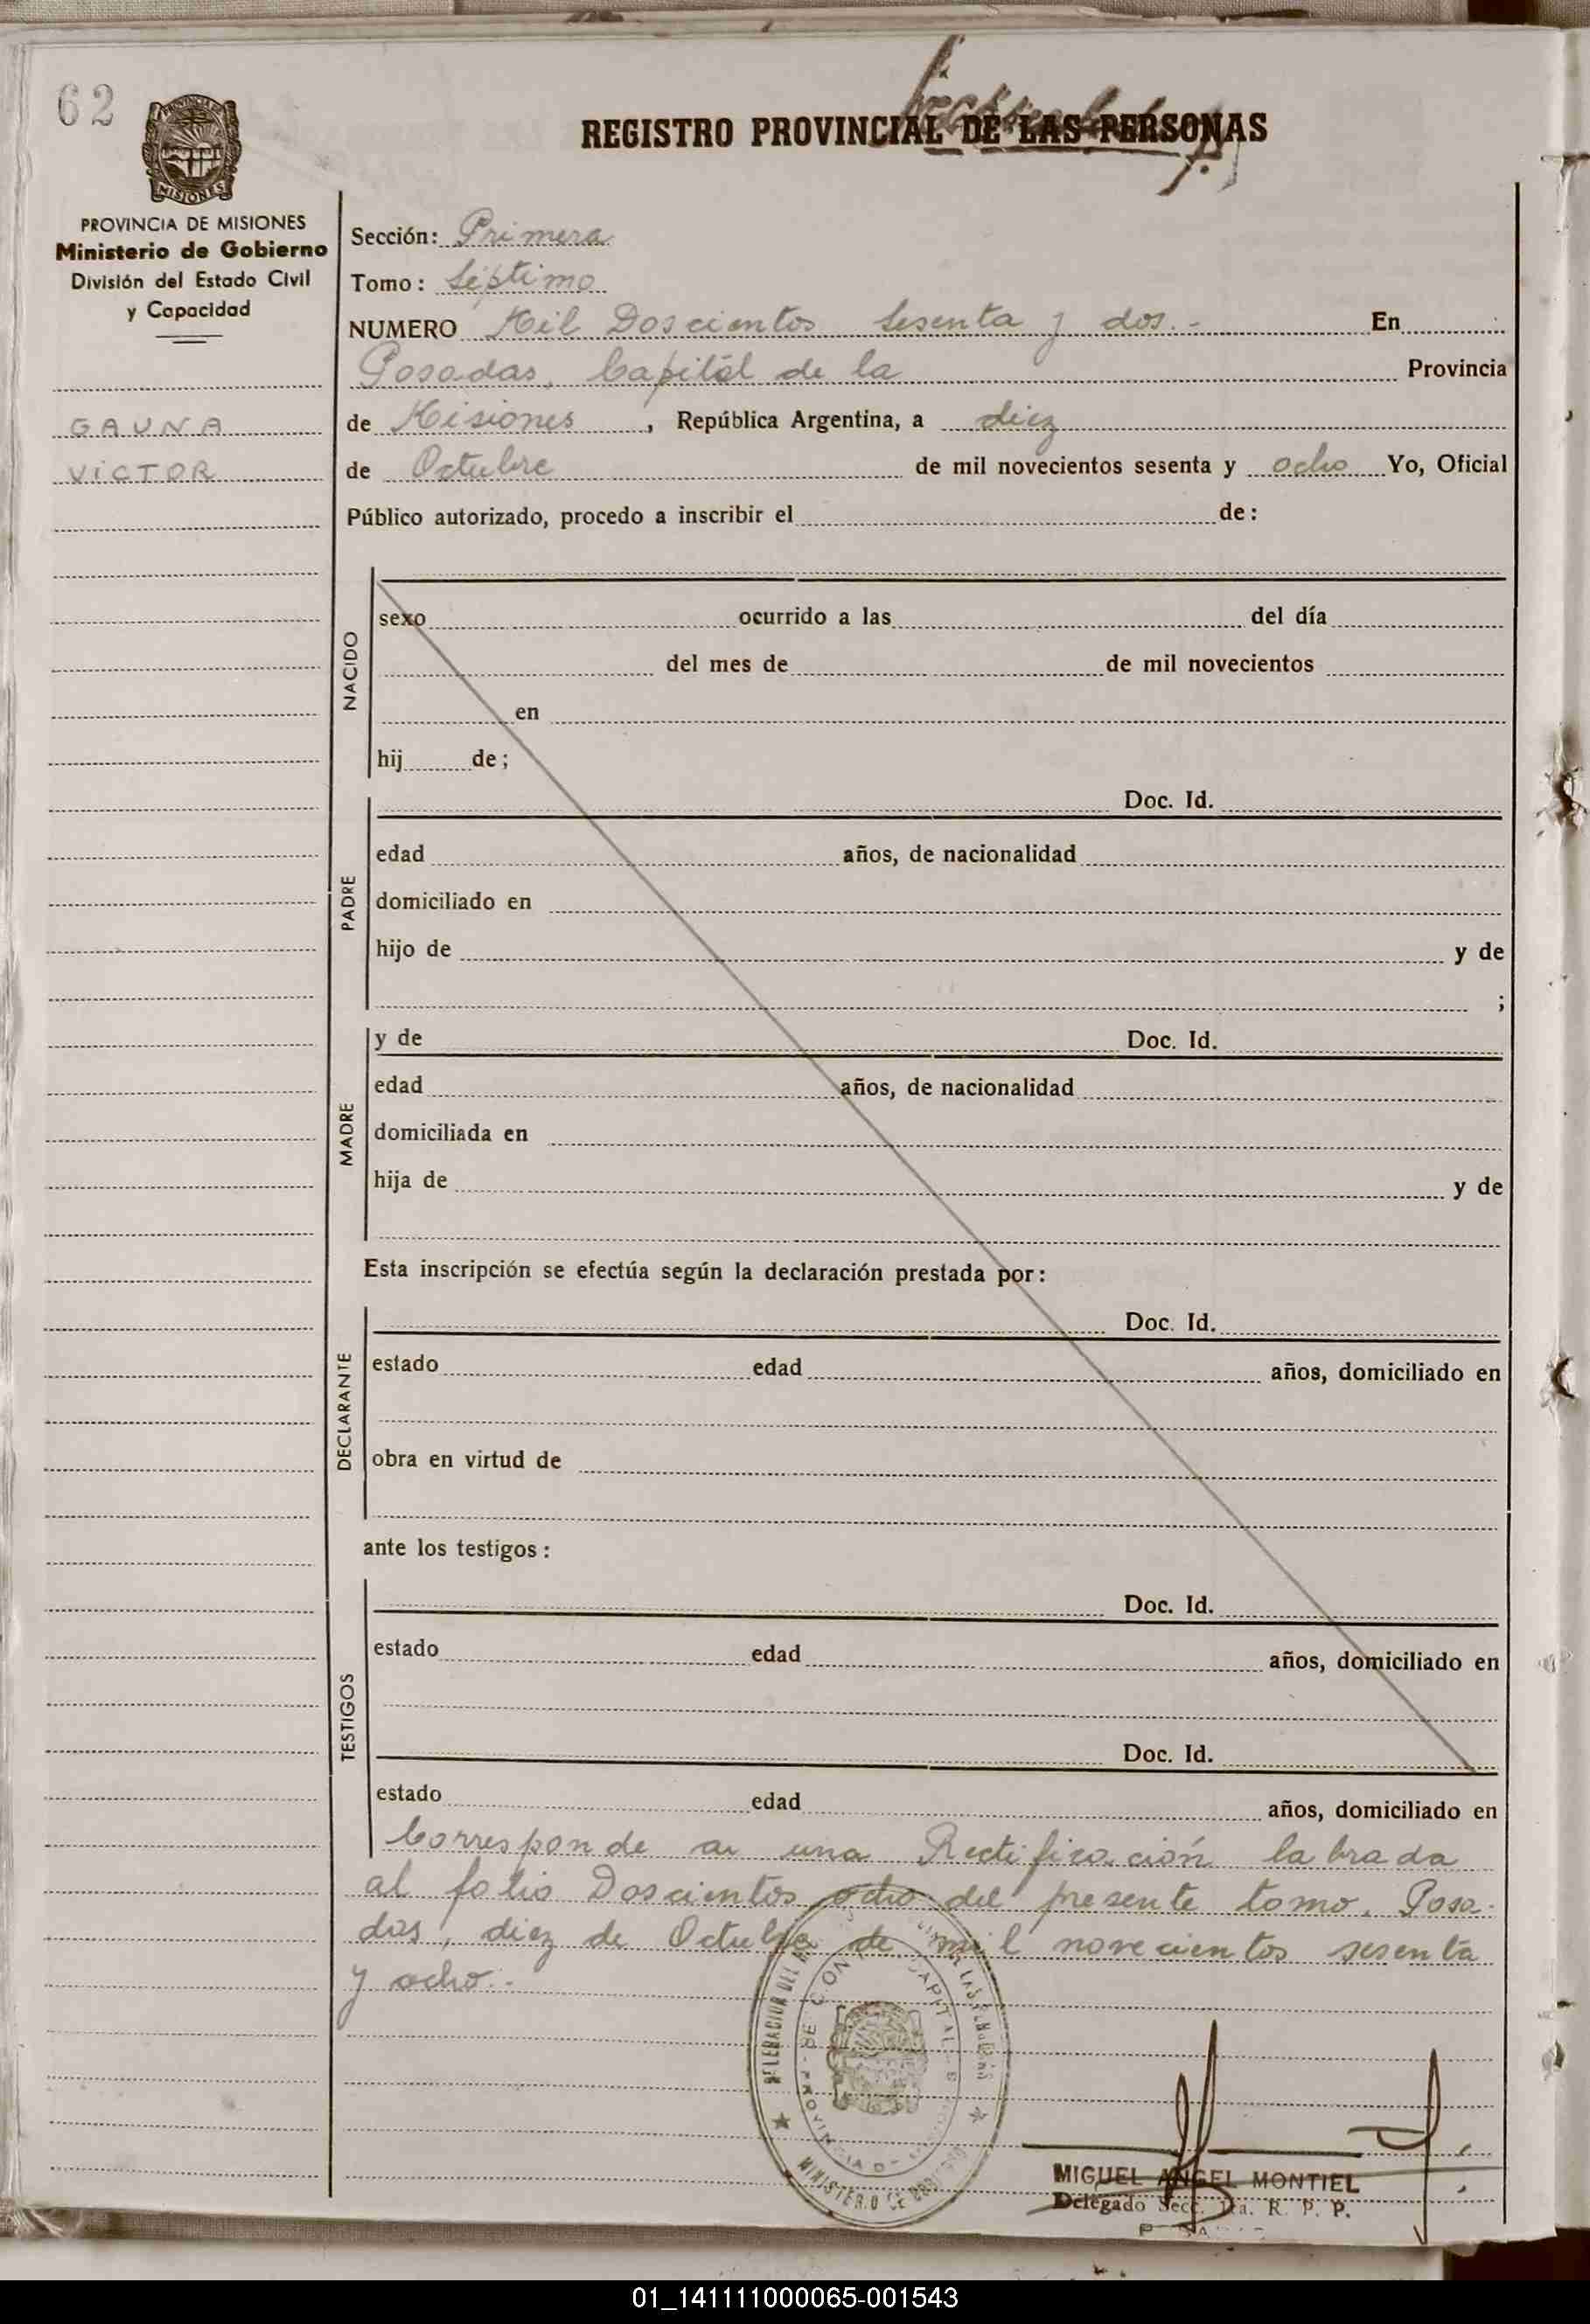 62
REGISTRO PROVINCIAL DE LAS PERSONAS
MISIONES
PROVINCIA DE MISIONES
Ministerio de Gobierno
División del Estado Civil
y Capacidad
GAUNA
VICTOR
Sección: Primera
Tomo: Séptimo
NUMERO Mil Doscientos sesenta y dos.- En
Posadas, Capitál de la Provincia
de Misiones, República Argentina, a diez
de Octubre de mil novecientos sesenta y ocho Yo, Oficial
Público autorizado, procedo a inscribir el de:
NACIDO
sexo ocurrido a las del día
del mes de de mil novecientos
en
hij de;
PADRE
Doc. Id.
edad años, de nacionalidad
domiciliado en
hijo de y de
;
MADRE
y de Doc. Id.
edad años, de nacionalidad
domiciliada en
hija de y de
Esta inscripción se efectúa según la declaración prestada por:
DECLARANTE
Doc. Id.
estado edad años, domiciliado en
obra en virtud de
ante los testigos:
TESTIGOS
Doc. Id.
estado edad años, domiciliado en
Doc. Id.
estado edad años, domiciliado en
Corresponde a una Rectificación labrada
al folio Doscientos ocho del presente tomo. Posa-
das, diez de Octubre de mil novecientos sesenta
y ocho.-
MIGUEL ANGEL MONTIEL
Delegado Secc. 1ra. R. P. P.
01_141111000065-001543